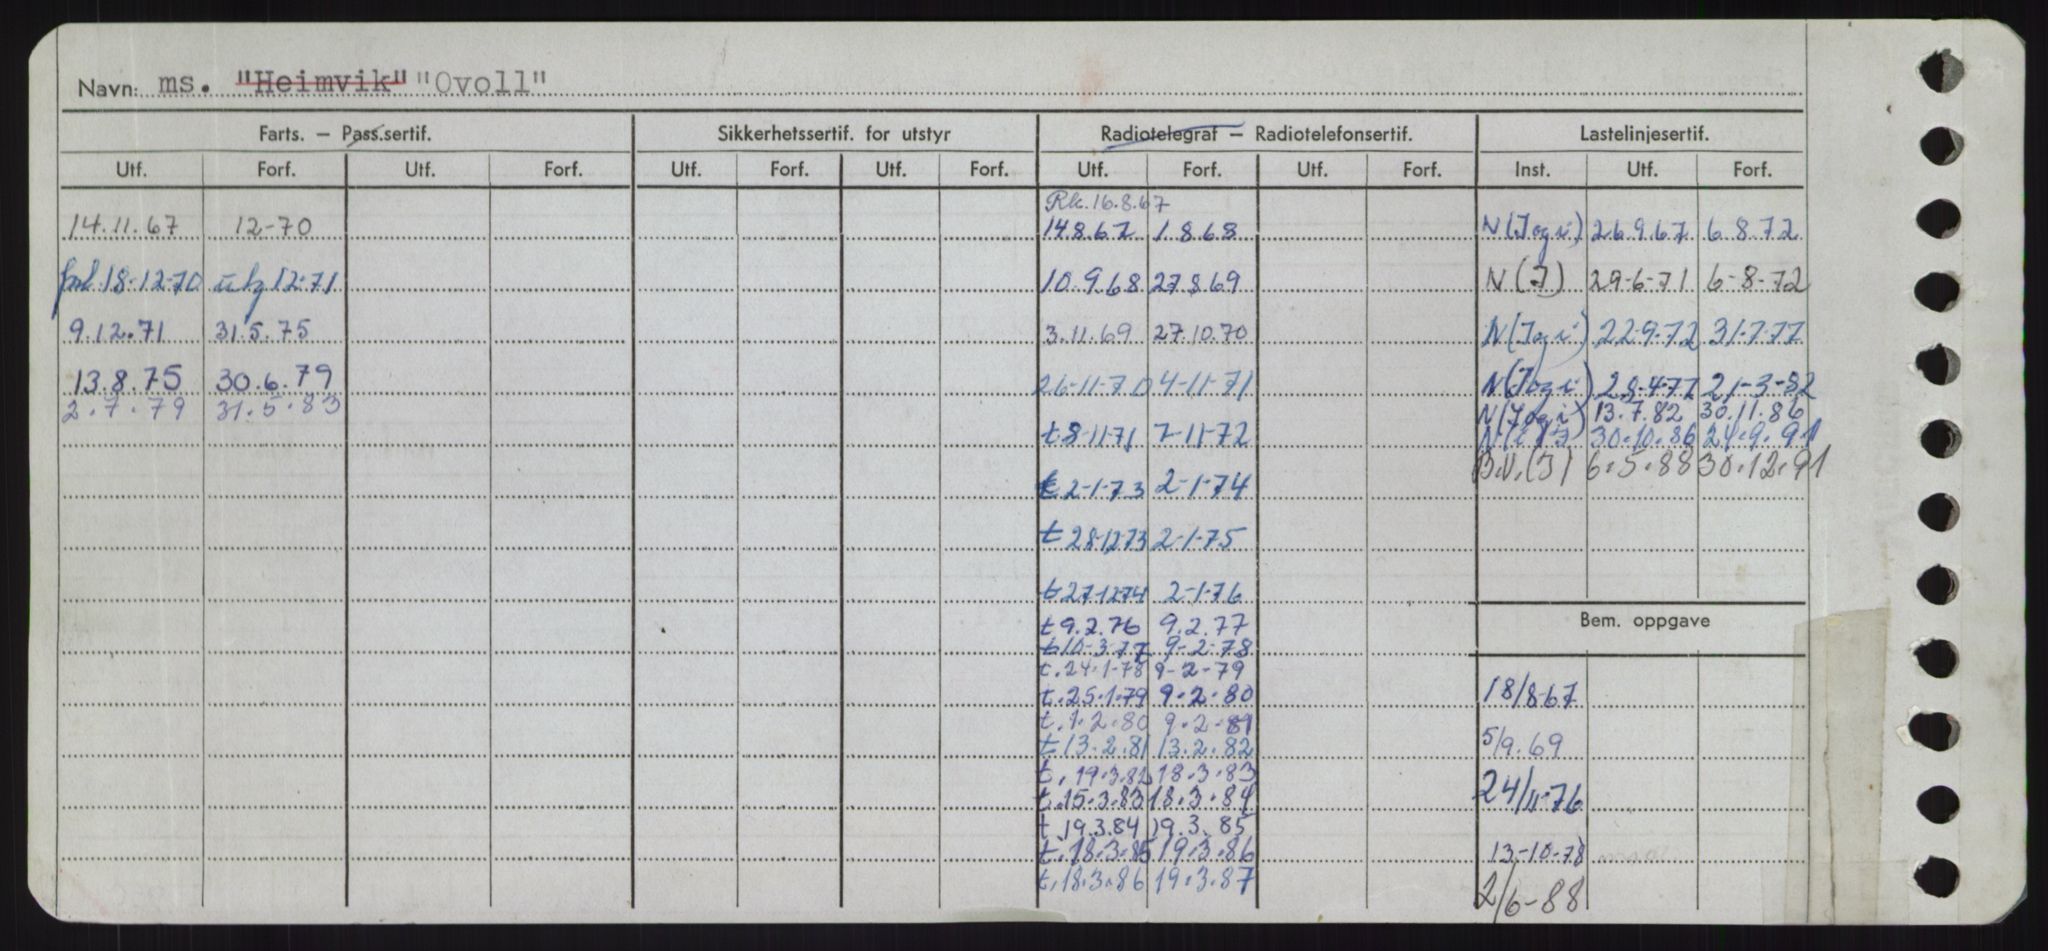 Navn: ms. "Heimvik" "Ovoll"
Farts. – Pass.sertif. Sikkerhetssertif. for utstyr Radiotelegraf – Radiotelefonsertif. Lastelinjesertif.
Utf. Forf. Utf. Forf. Utf. Forf. Utf. Forf. Utf. Forf. Utf. Forf. Inst. Utf. Forf.
Rk. 16.8.67
14.11.67 12-70 14.8.67 1.8.68 N(I og i) 26.9.67 6.8.72
18-12-70 utg 12-71 10.9.68 27.8.69 N(I) 29-6-71 6-8-72
9.12.71 31.5.75 3.11.69 27.10.70 N(I og i) 22-9-72 31-7-77
13.8.75 30.6.79 26-11-70 4-11-71 N(I og i) 28-4-77 21-3-82
2.7.79 31.5.83 N(I og i) 13.7.82 30.11.86
t 8-11-71 7-11-72 30.10.86 24.9.91
B.V.(I) 6.5.88 30.12.91
t 2-1-73 2-1-74
t 28-12-73 2-1-75
t 27-12-74 2-1-76
Bem. oppgave
t 9.2.76 9.2.77
t 10-3-77 9-2-78
t. 24.1-78 9-2-79
t. 25.1.79 9.2.80 18/8-67
t. 1.2.80 9.2.81
t. 13.2.81 13.2.82 5/9.69
t. 19.3.82 18.3.83
t. 15.3.83 18.3.84 24/11-76
t. 19.3.84 19.3.85
t. 18.3.85 19.3.86 13-10-78
t. 18.3.86 19.3.87 2/6-88